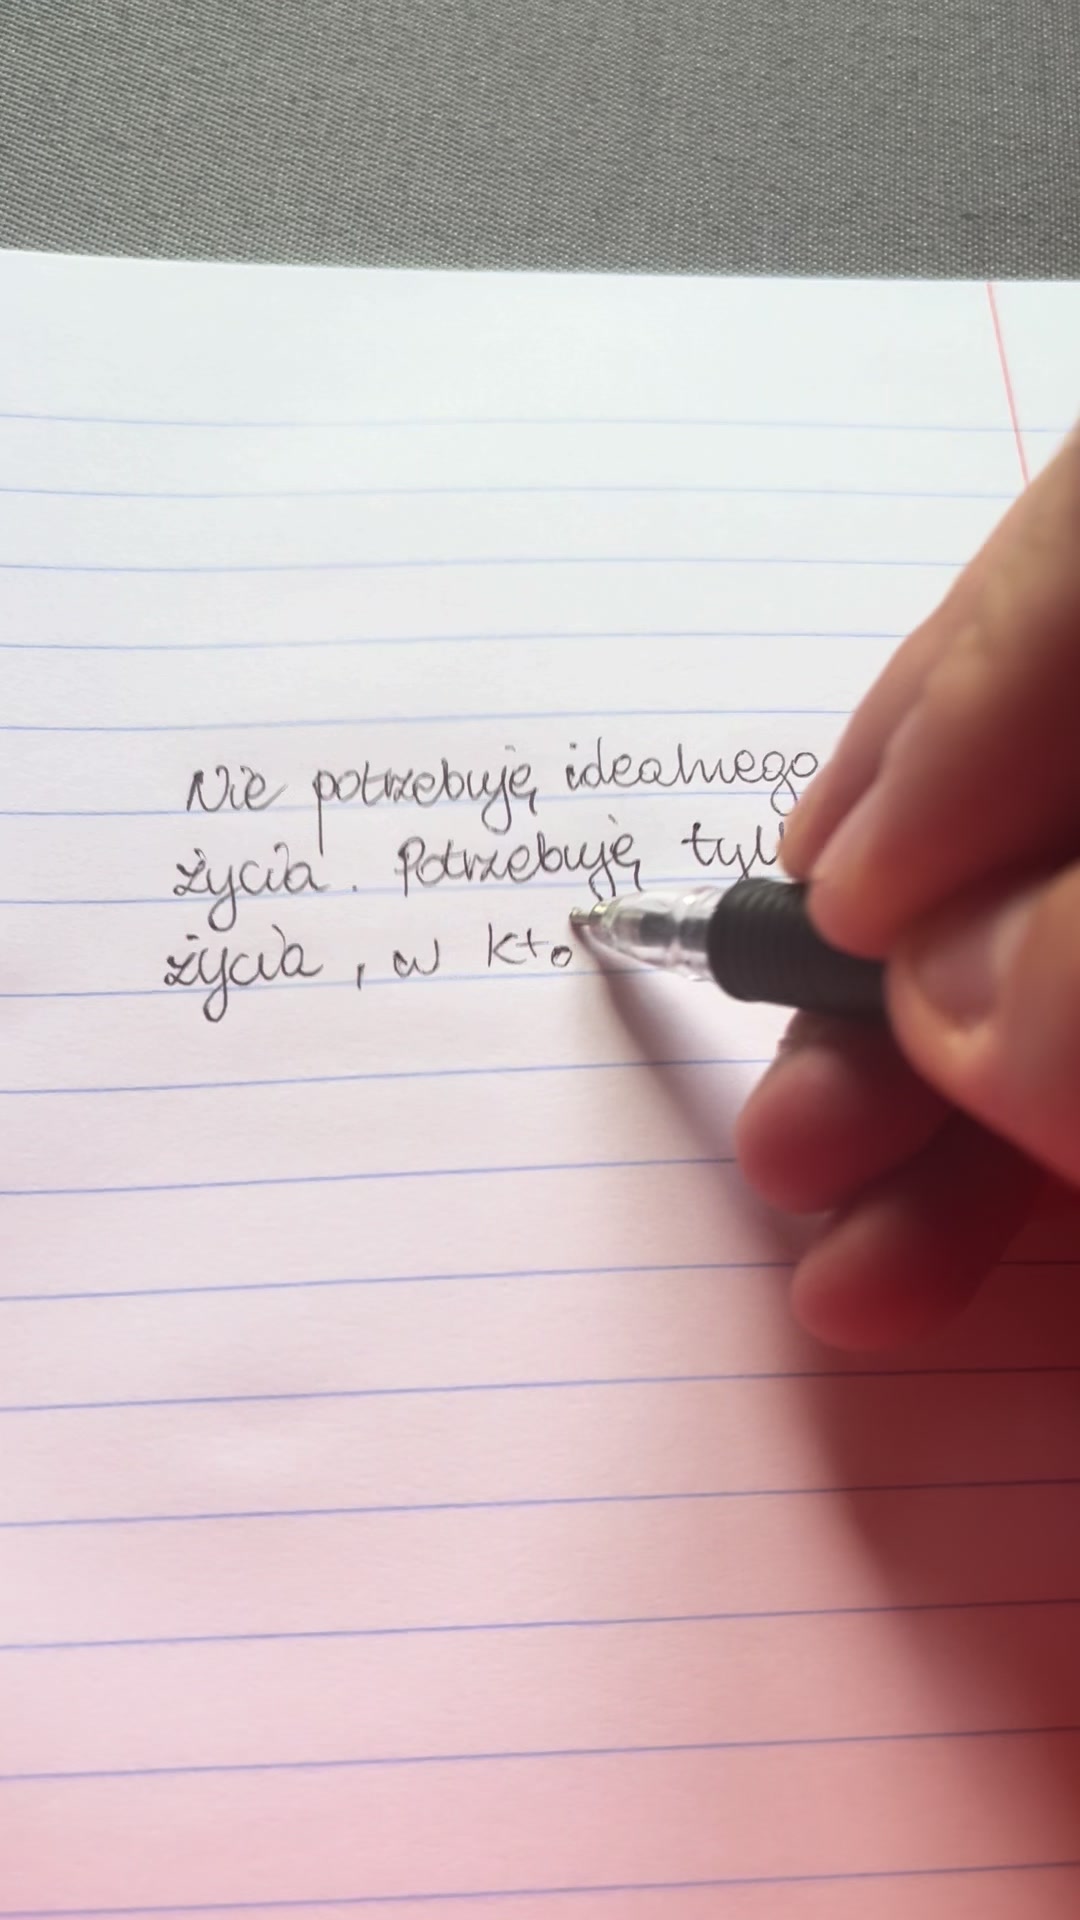 Nie potrzebuję idealnego
życia. Potrzebuję tyl
życia, w kto